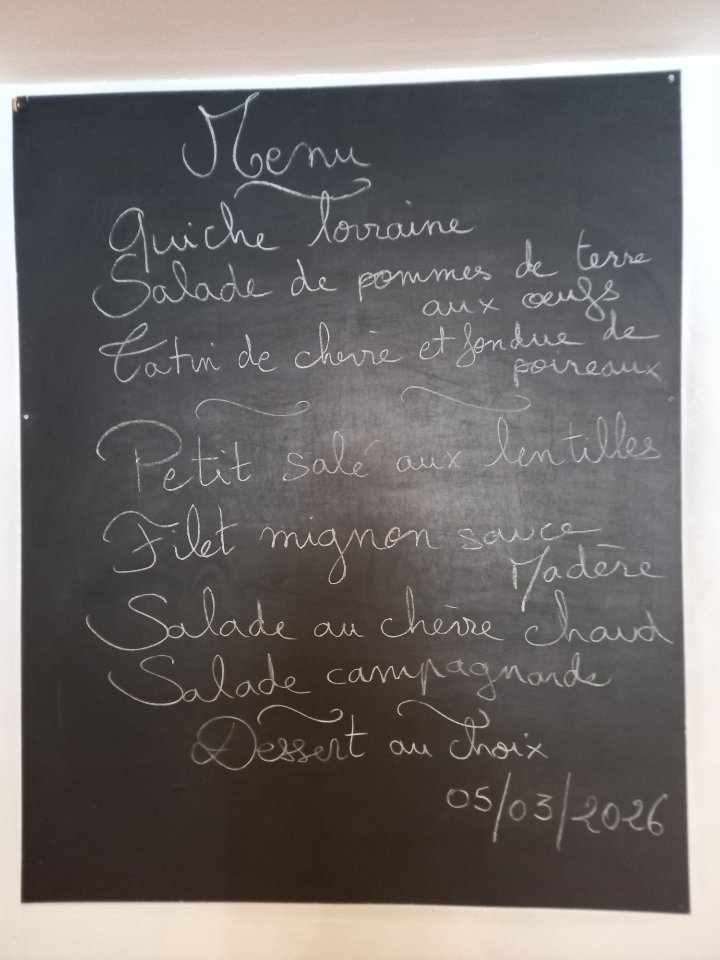 Menu
Quiche lorraine
Salade de pommes de terre
aux oeufs
Tatin de chèvre et fondue de
poireaux
Petit salé aux lentilles
Filet mignon sauce
Madère
Salade au chèvre chaud
Salade campagnarde
Dessert au choix
05/03/2026